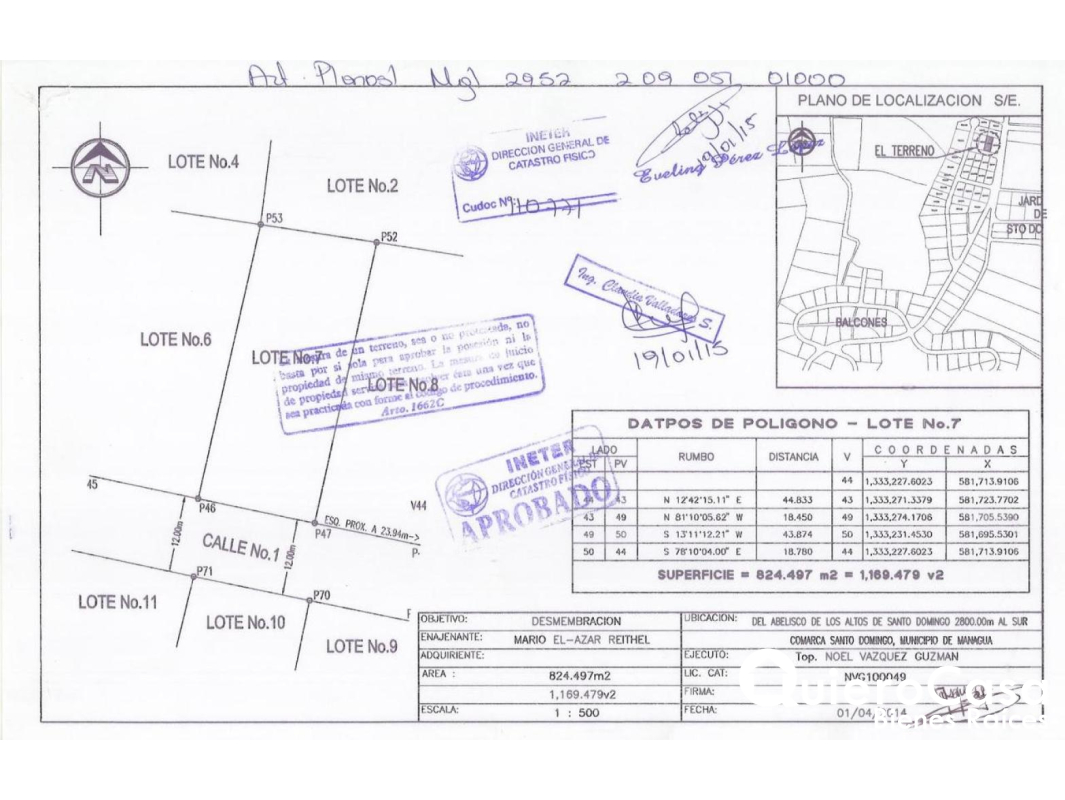 Mgl 2952 2 09 051 01000
PLANO DE LOCALIZACION S/E.
N
LOTE No.4
LOTE No.2
INETER
DIRECCION GENERAL DE
CATASTRO FISICO
Cudoc Nº:
19/01/15
Eveling Pérez López
EL TERRENO
JARD
DE
STO DO
BALCONES
P53
P52
LOTE No.6
LOTE No.7
LOTE No.8
Ing. Claudia Valladares S.
19/01/15
de un terreno, sea o no protocolada, no
basta por si sola para aprobar la posesión ni la
propiedad de mismo terreno. La mesura de juicio
de propiedad esta una vez que
sea practicada con forme al código de procedimiento.
Arto. 1662C
INETER
DIRECCIÓN GENERAL DE
CATASTRO FISICO
APROBADO
45
P46
V44
ESQ. PROX. A 23.94m->
P47
P-
12.00m
CALLE No.1
12.00m
P71
P70
LOTE No.11
LOTE No.10
LOTE No.9
DATPOS DE POLIGONO - LOTE No.7
LADO RUMBO DISTANCIA V COORDENADAS
EST PV Y X
44 1,333,227.6023 581,713.9106
43 N 12°42'15.11" E 44.833 43 1,333,271.3379 581,723.7702
43 49 N 81°10'05.62" W 18.450 49 1,333,274.1706 581,705.5390
49 50 S 13°11'12.21" W 43.874 50 1,333,231.4530 581,695.5301
50 44 S 78°10'04.00" E 18.780 44 1,333,227.6023 581,713.9106
SUPERFICIE = 824.497 m2 = 1,169.479 v2
OBJETIVO: DESMEMBRACION
UBICACION: DEL ABELISCO DE LOS ALTOS DE SANTO DOMINGO 2800.00m AL SUR
ENAJENANTE: MARIO EL-AZAR REITHEL
COMARCA SANTO DOMINGO, MUNICIPIO DE MANAGUA
ADQUIRIENTE:
EJECUTO: Top. NOEL VAZQUEZ GUZMAN
AREA : 824.497m2
LIC. CAT: NVG100049
1,169.479v2
FIRMA:
ESCALA: 1 : 500
FECHA: 01/04/2014
QuieroCasa
Bienes Raíces